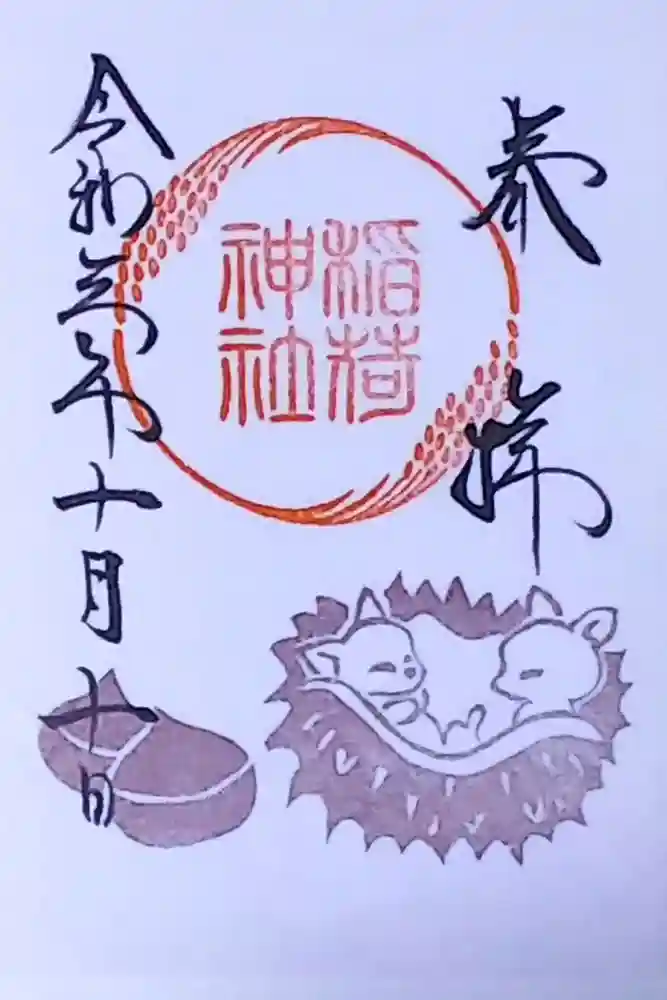 奉拝
稲荷
神社
令和三年十月十日